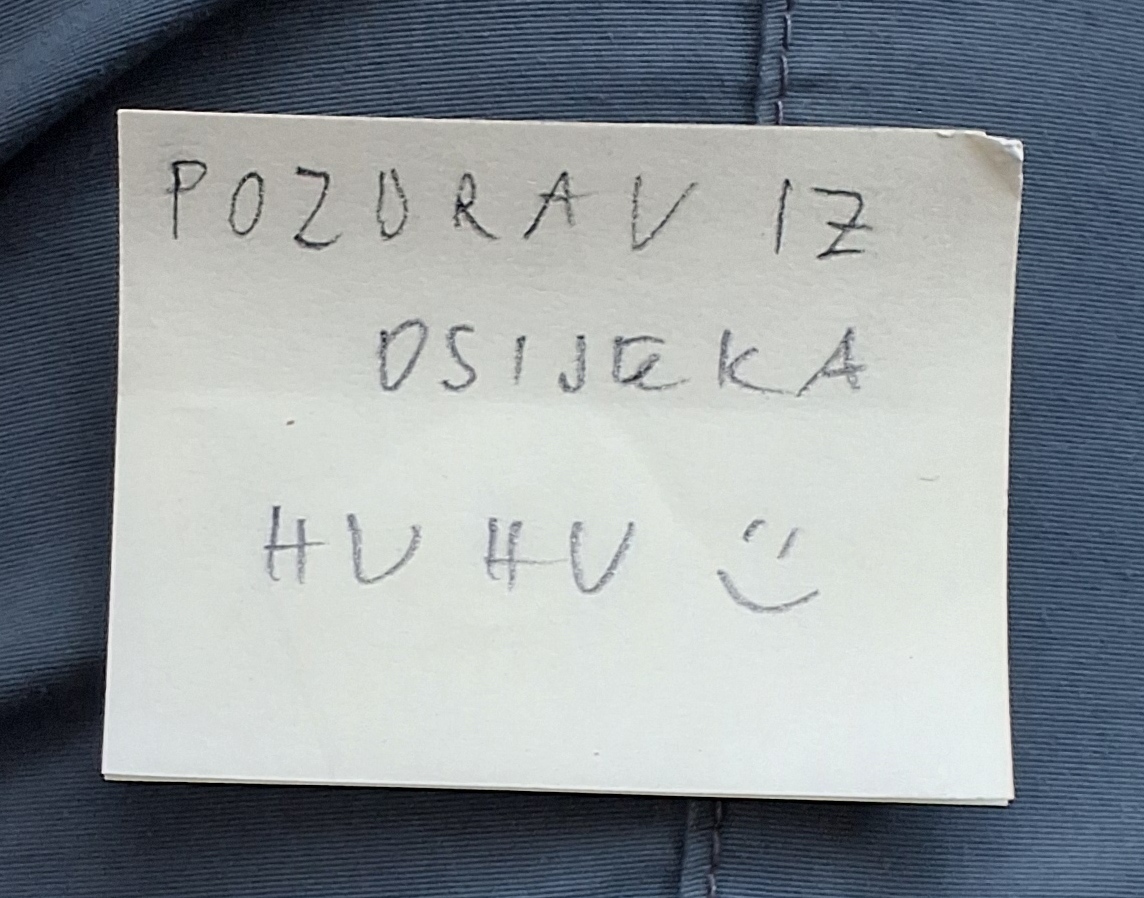 POZDRAV IZ
OSIJEKA
HU HU :)